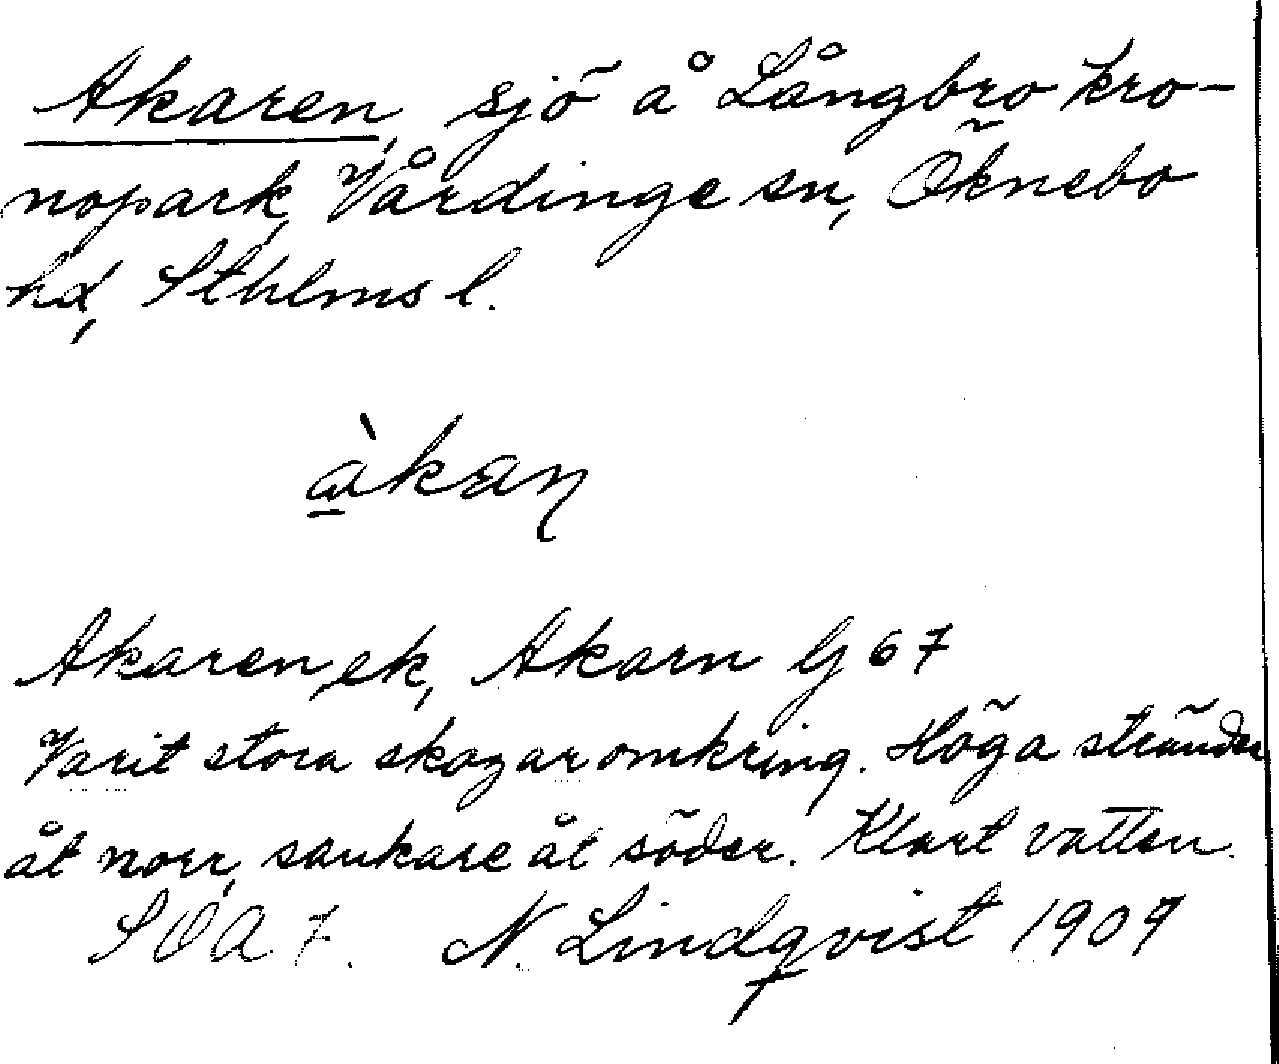 Akaren, sjö å Långbro kro-
nopark, Vårdinge sn, Öknebo
hd, Sthlms l.
àkaη
Akaren, ek, Akarn Gj 67
Varit stora skogar omkring. Höga stränder
åt norr, sankare åt söder. Klart vatten.
SOA 7. N. Lindqvist 1909